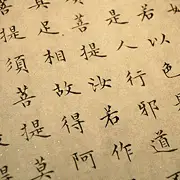 若以色
是人行邪道
菩提汝若作
足相故得阿
提須菩提莫